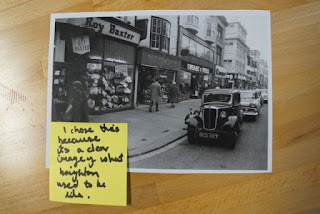 Roy Baxter
BAXTER
I chose this
because
its a clear
image of what
brighton
used to be
like.